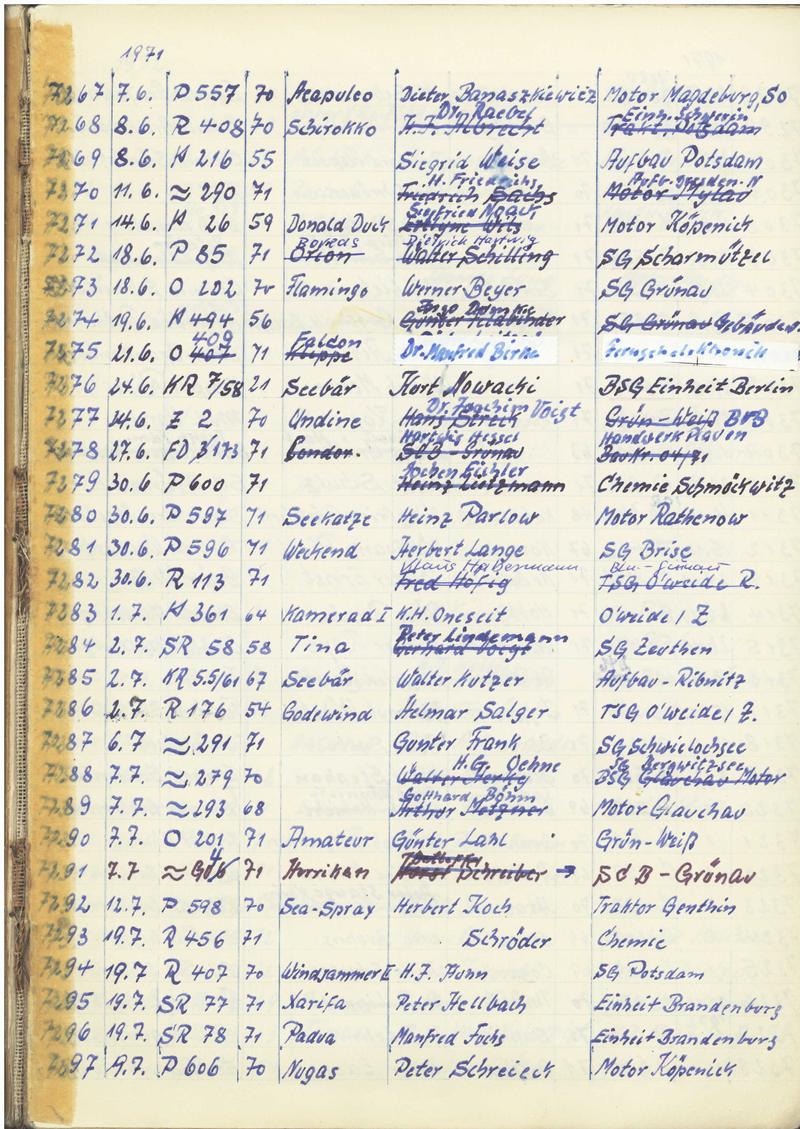 1971
7267 7.6. P 557 70 Acapulco Dieter Banaszkiewicz Motor Magdeburg, So
Dr. Raebel Einh. Schwerin
7268 8.6. R 408 70 Schirokko H.J. Albrecht Trakt. Potsdam
7269 8.6. H 216 55 Siegrid Weise Aufbau Potsdam
H. Friedrichs Aufb. Dresden-N
7270 11.6. ≈ 290 71 Friedrich Sachs Motor Mylau
Siegfried
7271 14.6. H 26 59 Donald Duck Motor Köpenick
Boreas Dietrich Hartwig
7272 18.6. P 85 71 Orion Walter Schilling SG Scharmützel
7273 18.6. O 202 70 Flamingo Werner Beyer SG Grünau
Ingo
7274 19.6. H 494 56 Günter SG Grünau
409 Falcon
7275 21.6. O 407 71 Dr. Manfred Birke Fernsehelektronik
7276 24.6. KR 7/58 21 Seebär Kurt Nowacki BSG Einheit Berlin
Dr. Joachim Voigt
7277 24.6. Z 2 70 Undine Hans Streck Grün-Weiß BVB
Hartwig Hessel Handwerk Plauen
7278 27.6. FD 3/173 71 Condor. SCB - Grünau Baukr. 04/71
Jochen Eichler
7279 30.6 P 600 71 Heinz Lietzmann Chemie Schmöckwitz
7280 30.6. P 597 71 Seekatze Heinz Parlow Motor Rathenow
7281 30.6. P 596 71 Weekend Herbert Lange SG Brise
Klaus Habermann
7282 30.6. R 113 71 Fred Höfig TSG O'weide R.
7283 1.7. H 361 64 Kamerad I K.H. Oneseit O'weide / Z
Peter Lindemann
7284 2.7. SR 58 58 Tina Gerhard Voigt SG Zeuthen
7285 2.7. KR 5.5/61 67 Seebär Walter Kutzer Aufbau-Ribnitz
7286 2.7. R 176 54 Godewind Helmar Salger TSG O'weide / Z.
7287 6.7 ≈ 291 71 Günter Frank SG Schwielochsee
H.G. Oehne SG Bergwitzsee
7288 7.7. ≈ 279 70 Walter BSG Glauchau Motor
Gotthard Böhm
7289 7.7. ≈ 293 68 Arthur Metzner Motor Glauchau
7290 7.7. O 201 71 Amateur Günter Lahl Grün-Weiß
7291 7.7 ≈ 71 Hurrikan Horst Schreiber → SCB - Grünau
7292 12.7. P 598 70 Sea-Spray Herbert Koch Traktor Genthin
7293 19.7. R 456 71 Schröder Chemie
7294 19.7 R 407 70 Windjammer II H.J. Huhn SG Potsdam
7295 19.7. SR 77 71 Xarifa Peter Hellbach Einheit Brandenburg
7296 19.7. SR 78 71 Padua Manfred Fuchs Einheit Brandenburg
7297 9.7. P 606 70 Nugas Peter Schreieck Motor Köpenick